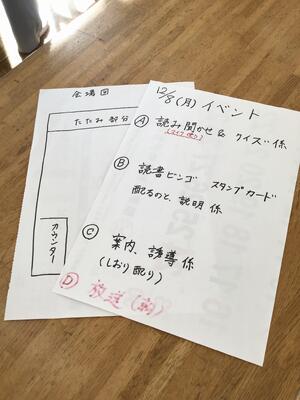 会場図
たたみ部分
カウンター
12/8(月)イベント
Ⓐ 読み聞かせ & クイズ係
(マイク使う)
Ⓑ 読書ビンゴ スタンプカード
配るのと、説明係
Ⓒ 案内、誘導係
(しおり配り)
Ⓓ 放送(朝)